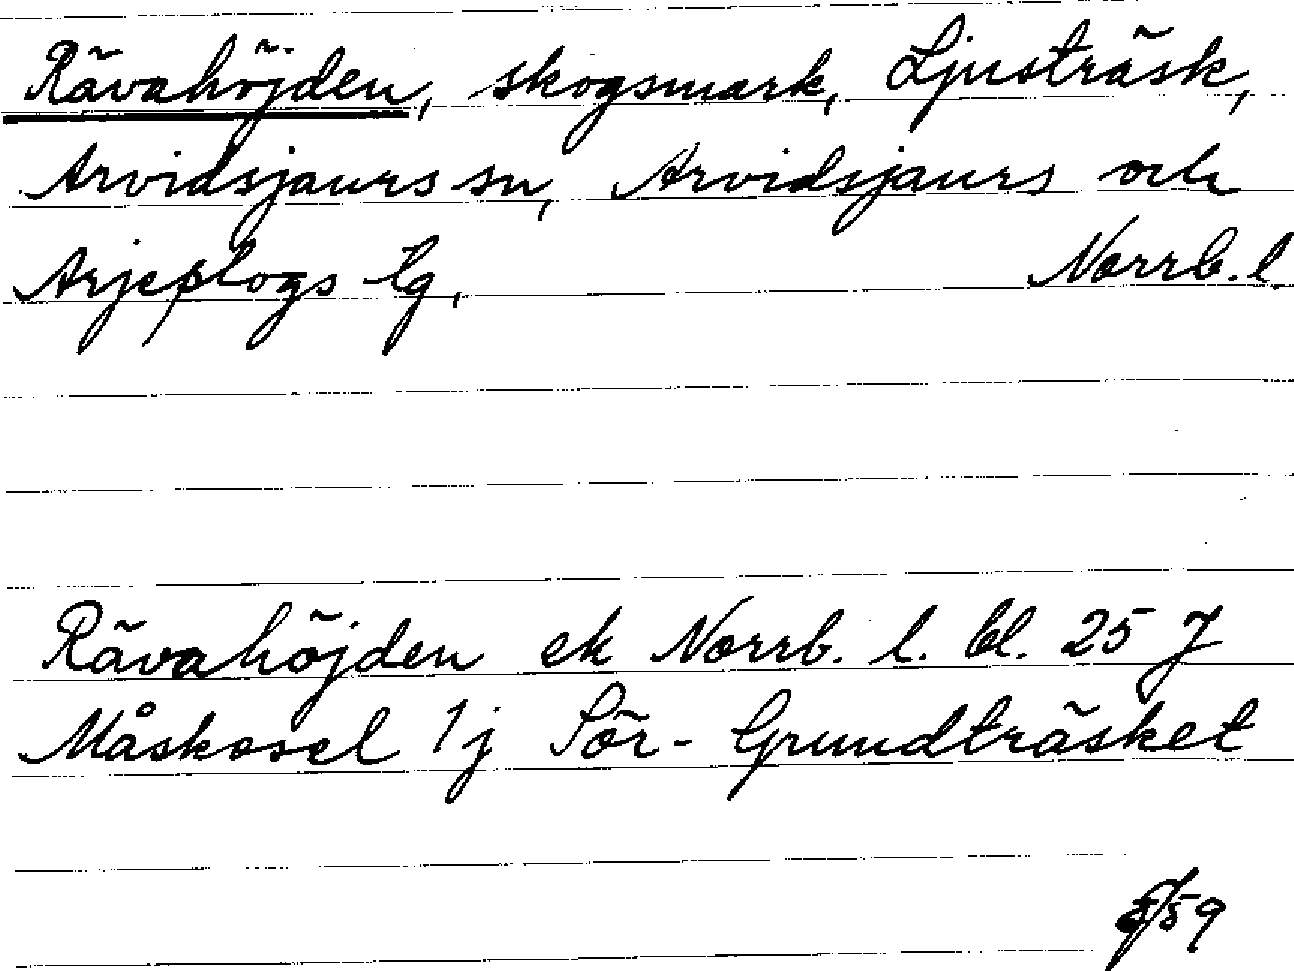 Rävahöjden, skogsmark, Ljusträsk,
Arvidsjaurs sn, Arvidsjaurs och
Arjeplogs tg, Norrb. l.
Rävahöjden ek Norrb. l. bl. 25 J
Måskosel 1j Sör-Grundträsket